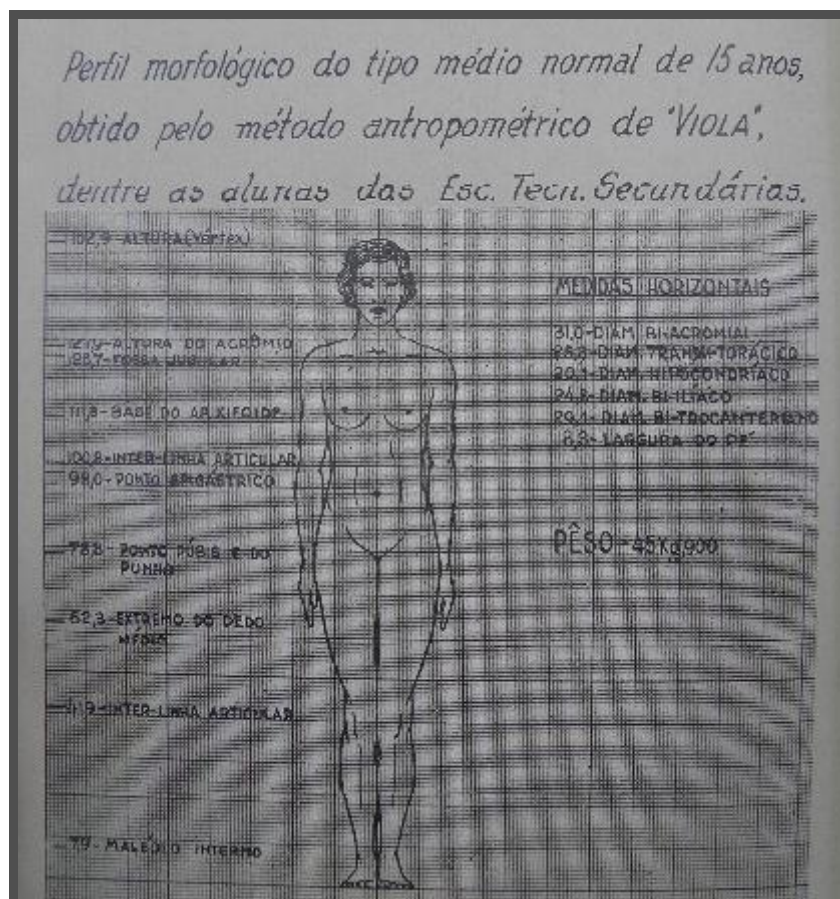 Perfil morfológico do tipo médio normal de 15 anos,
obtido pelo método antropométrico de "VIOLA",
dentre as alunas das Esc. Tecn. Secundárias.
152,9-ALTURA (Vértex)
ALTURA DO ACRÔMIO
FOSSA JUGULAR
111,8-BASE DO AP. XIFOIDE
100,8-INTER-LINHA ARTICULAR
PONTO EPIGÁSTRICO
PONTO PÚBIS E DO
PUNHO
62,3-EXTREMO DO DEDO
MÉDIO
INTER-LINHA ARTICULAR
MALÉOLO INTERNO
MEDIDAS HORIZONTAIS
31,0-DIAM. BI-ACROMIAL
DIAM. TRANSV-TORÁCICO
DIAM. HIPOCONDRÍACO
DIAM. BI-ILÍACO
DIAM. BI-TROCANTERIANO
LARGURA DO PÉ
PÊSO-45Kg900